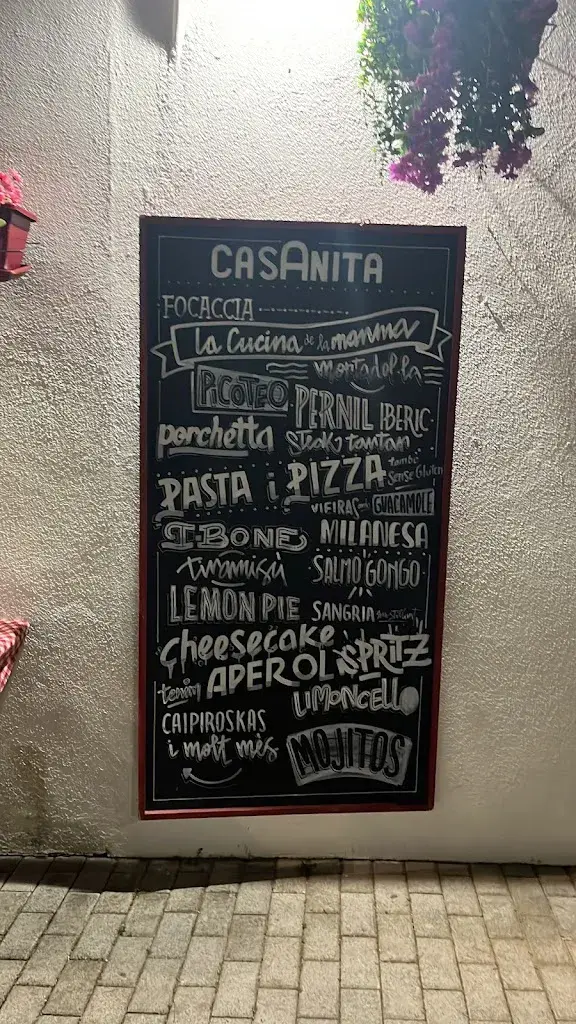 CASANITA
FOCACCIA
La Cucina de la mamma
mortadella
PICOTEO
PERNIL IBERIC
porchetta
Steak tartar
PASTA i PIZZA
també
Sense Gluten
VIEIRAS GUACAMOLE
T-BONE
MILANESA
tiramisú
SALMO GONGO
LEMON PIE
SANGRIA
Cheesecake
tenim APEROL SPRITZ
LIMONCELLO
CAIPIROSKAS
i molt mès
MOJITOS